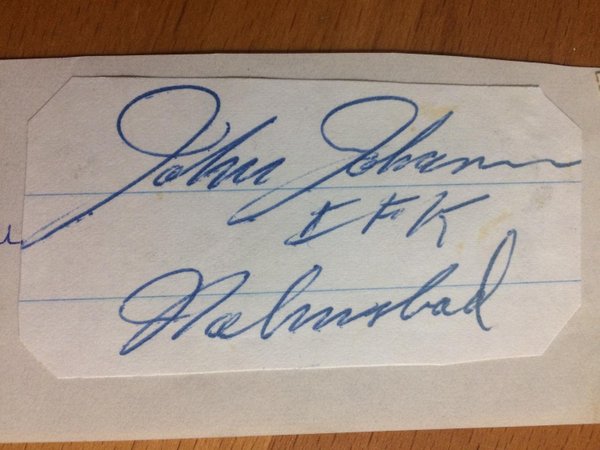 John Johansson
IFK
Halmstad